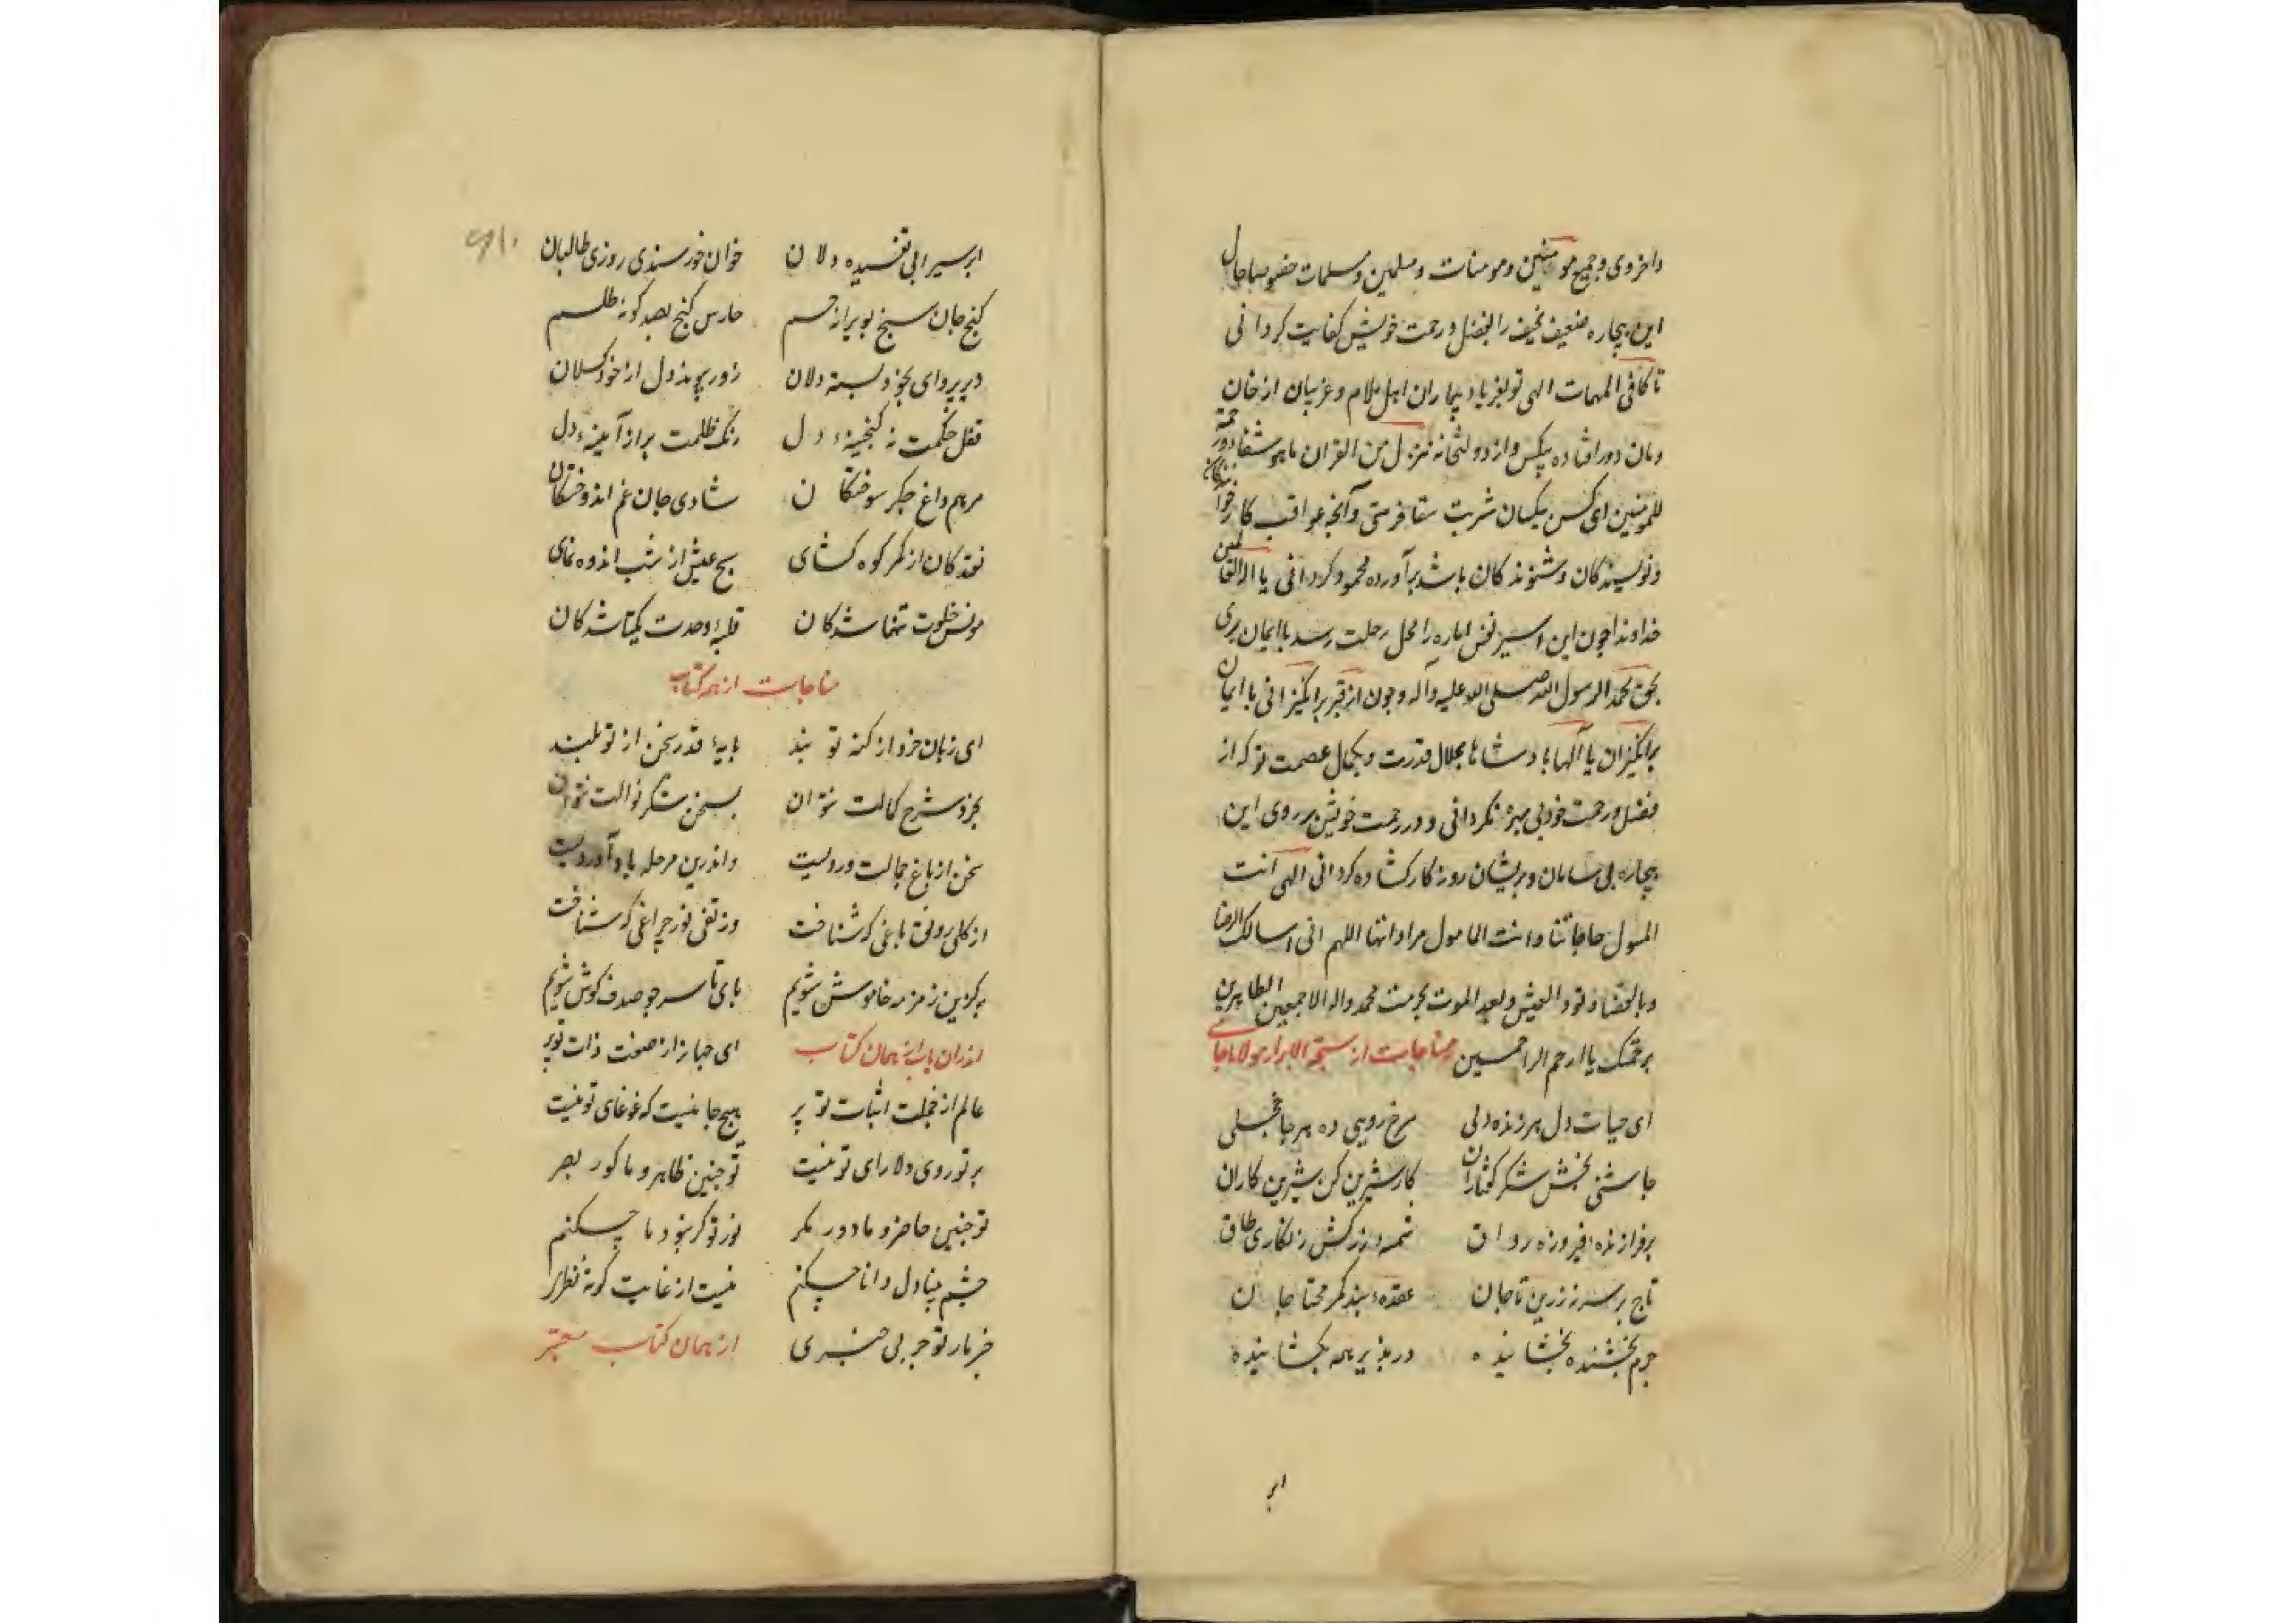 واخروی وجمیع مومنین ومومنات ومسلمین ومسلمات خصوصا حال
این بیچاره ضعیف نحیف را بفضل ورحمت خویش کفایت کردانی
تا کافی المهمات الهی تو بفریاد بیماران اهل اسلام وغریبان از خان
ومان دور افتاده بیکس واز دولتخانه ننزل من القران ما هو شفا ورحمة
للمومنین ای کس بیکسان شربت شفا فرستی وآنچه عواقب کار خوانندکان
ونویسندکان وشنوندکان باشد برآورده محمود کردانی یا اله العالمین
خداوندا چون این اسیر نفس اماره را محل رحلت رسد با ایمان بری
بحق محمد الرسول الله صلی الله علیه وآله وچون از قبر برانکیزانی با ایمان
برانکیزان یا آلها پادشاها بجلال قدرت وبکمال عصمت تو که از
فضل ورحمت خود بی بهره نکردانی ودر رحمت خویش بر روی این
بیچاره بی سامان وپریشان روزکار کشاده کردانی الهی انت
المسول حاجاتنا وانت المامول مراداتنا اللهم انی اسالک الرضا
وبالقضا وبرد العیش وبعد الموت بحرمت محمد واله الاجمعین الطاهرین
برحمتک یا ارحم الراحمین مناجات از سبحة الابرار مولانا جامی
ای حیات دل هر زنده دلی سرخ رویی ده هر جا خجلی
چاشنی بخش شکر کفتاران کار شیرین کن شیرین کاران
برفرازنده فیروزه رواق شمسه زرکش زنکاری طاق
تاج بر سر نه زرین تاجان عقده بند کمر محتاجان
جرم بخشنده بخشاینده در پذیر همه بکشاینده
ابر
ابر سیرابی تفسیده دلان خوان خورسندی روزی طالبان
کنج جان سنج بویرانه جسم حارس کنج بصد کونه طلسم
دیر پروای بخود بسته دلان زود پیوند دل از خود کسلان
قفل حکمت نه کنجینه دل زنک ظلمت بر از آینه دل
مرهم داغ جکر سوختکان شادی جان غم اندوختکان
نقد کان از کمر کوه کشای صبح عیش از شب اندوه نمای
مونس خلوت تنها شدکان قبله وحدت یکتا شدکان
مناجات از همه کتاب
ای زبان خرد از کنه تو بند پایه قدر سخن از تو بلند
بخرد شرح کمالت نتوان بسخن شکر نوالت نتوان
سخن از باغ جمالت وردیست واندرین مرحله باد آوردیست
از کلی رونق باغی که شناخت وز تفی نور چراغی که شناخت
به کزین زمزمه خاموش شویم پای تا سر چو صدف کوش شویم
اندران باب از همان کتاب ای جهاز از صفت ذات تو پر
عالم از حجلت اثبات تو پر هیچ جا نیست که غوغای تو نیست
پرتو روی دلارای تو نیست تو چنین ظاهر وما کور بصر
تو چنین حاضر وما دور مکر نور تو کر نبود ما چکنم
چشم بینا دل دانا چکنم نیست از غایت کوته نظری
خبر ما ز تو جز بی خبری از همان کتاب معتبر